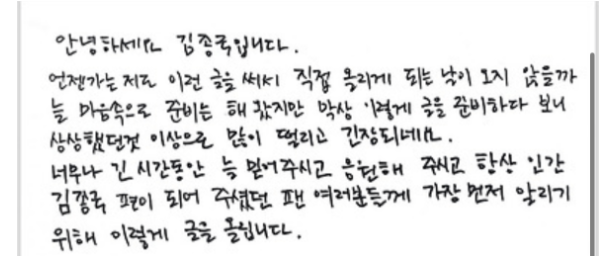 안녕하세요 김종국입니다.
언젠가는 저도 이런 글을 써서 직접 올리게 되는 날이 오지 않을까
늘 마음속으로 준비는 해 왔지만 막상 이렇게 글을 준비하다 보니
상상했던것 이상으로 많이 떨리고 긴장되네요.
너무나 긴 시간동안 늘 믿어주시고 응원해 주시고 항상 인간
김종국 편이 되어 주셨던 팬 여러분들께 가장 먼저 알리기
위해 이렇게 글을 올립니다.